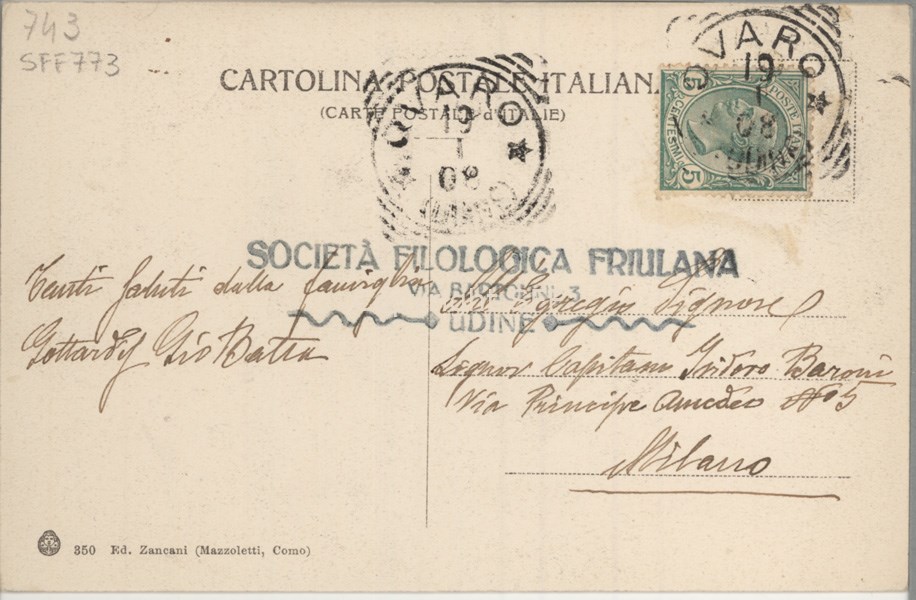 743
SFF773
CARTOLINA POSTALE ITALIANA
(CARTE POSTALE d'ITALIE)
OVARO
19
1
08
OVARO
19
1
08
POSTE ITALIANE
CENTESIMI 5
SOCIETÀ FILOLOGICA FRIULANA
VIA BARTOLINI, 3
UDINE
Tanti Saluti dalla famiglia
Gottardis Gio Batta
Egregio Signore
Signor Capitano Isidoro Baroni
Via Principe Amedeo No 5
Milano
350 Ed. Zancani (Mazzoletti, Como)